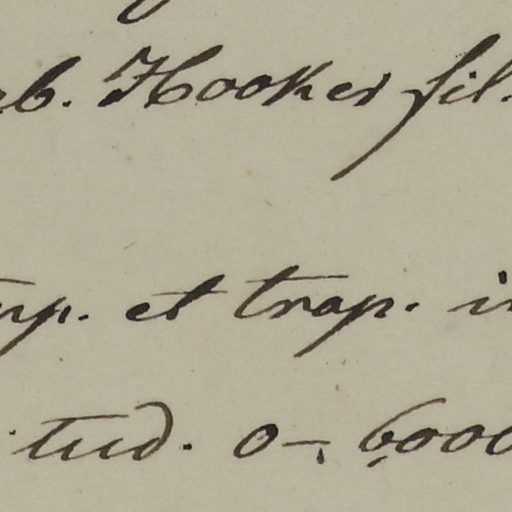 b. Hooker fil.
p. et trop. i
tud. 0-6000